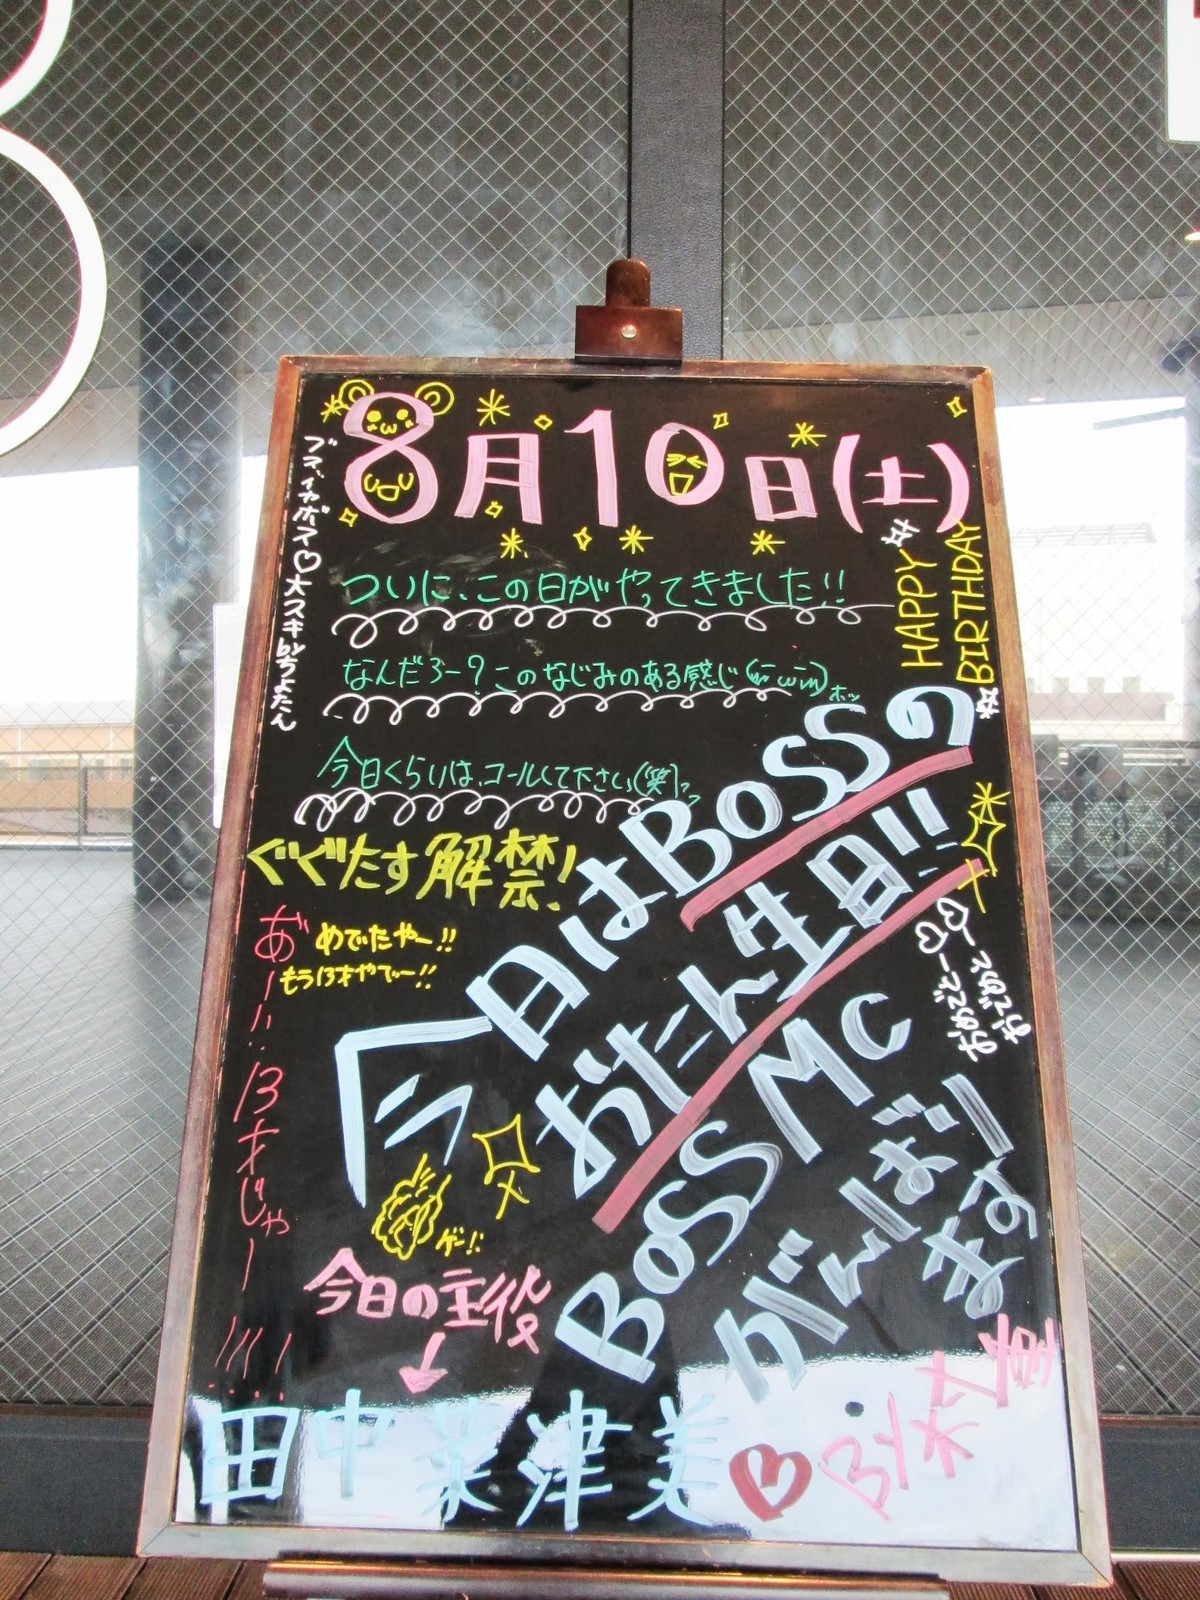 8月10日(土)
ブスィカボス♡大スキbyちよたん
HAPPY
BIRTHDAY
ついに、この日がやってきました!!
なんだろー?このなじみのある感じ
ホッ
今日くらいは、コールして下さい(笑)
ぐぐたす解禁!
今日はBOSSの
おたん生日!!
BOSS MC
がんばり
ます!
めでたやー!!
もう13才やでぃー!!
あ゛ーー!!
13才じゃー!!!!
おめでとー♡
おでめとー♡
ゲー!!
今日の主役
↓
田中菜津美